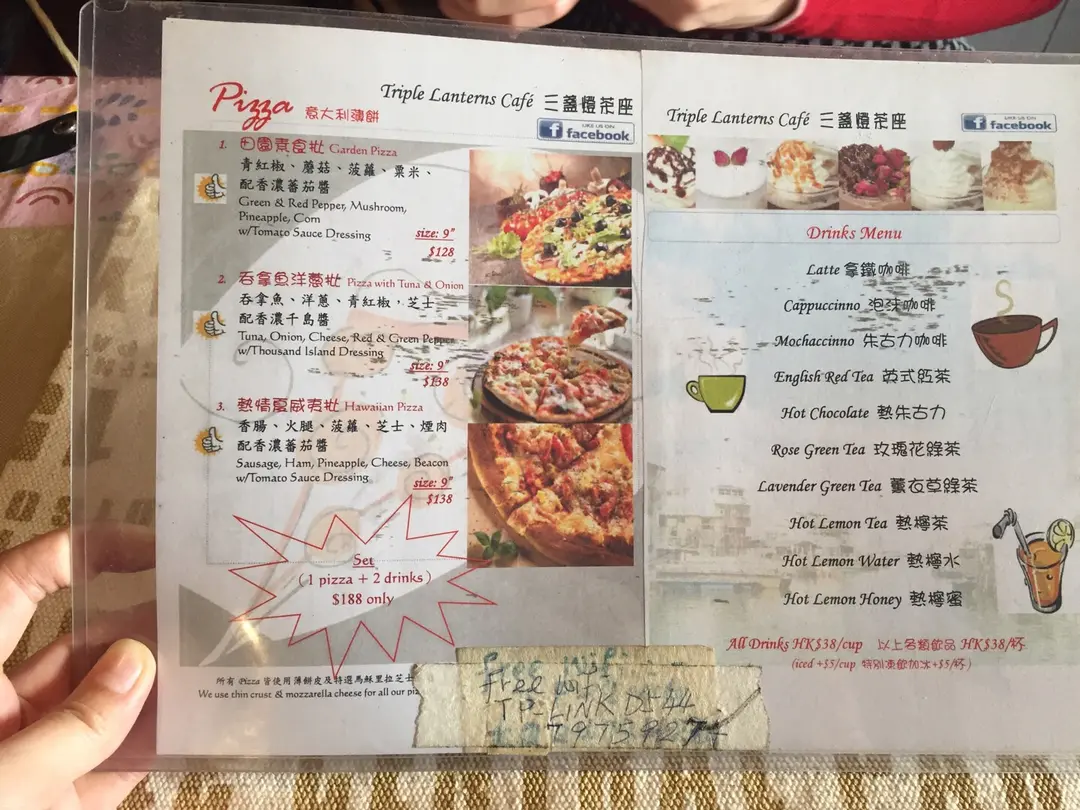 Pizza 意大利薄餅
Triple Lanterns Café 三盞燈茶座
LIKE US ON
facebook
1. 田園素食批 Garden Pizza
青紅椒、蘑菇、菠蘿、粟米、
配香濃蕃茄醬
Green & Red Pepper, Mushroom,
Pineapple, Corn
w/Tomato Sauce Dressing
size: 9"
$128
2. 吞拿魚洋蔥批 Pizza with Tuna & Onion
吞拿魚、洋蔥、青紅椒，芝士
配香濃千島醬
Tuna, Onion, Cheese, Red & Green Pepper
w/Thousand Island Dressing
size: 9"
$138
3. 熱情夏威夷批 Hawaiian Pizza
香腸、火腿、菠蘿、芝士、煙肉
配香濃蕃茄醬
Sausage, Ham, Pineapple, Cheese, Beacon
w/Tomato Sauce Dressing
size: 9"
$138
Set
( 1 pizza + 2 drinks )
$188 only
所有 Pizza 皆使用薄餅皮及特選馬穌里拉芝士
We use thin crust & mozzarella cheese for all our
Triple Lanterns Café 三盞燈茶座
LIKE US ON
facebook
Drinks Menu
Latte 拿鐵咖啡
Cappuccinno 泡沫咖啡
Mochaccinno 朱古力咖啡
English Red Tea 英式紅茶
Hot Chocolate 熱朱古力
Rose Green Tea 玫瑰花綠茶
Lavender Green Tea 薰衣草綠茶
Hot Lemon Tea 熱檸茶
Hot Lemon Water 熱檸水
Hot Lemon Honey 熱檸蜜
All Drinks HK$38/cup 以上各類飲品 HK$38/杯
(iced +$5/cup 特別凍飲加冰+$5/杯)
free wifi
free wifi
TP-LINK D544